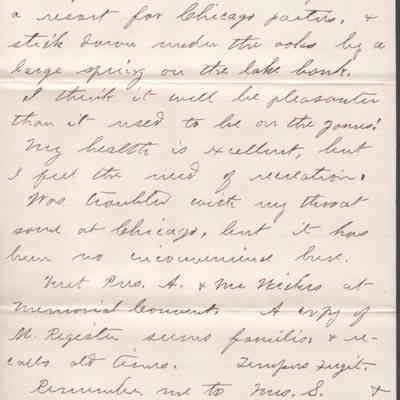 a resort for Chicago parties, &
stick down under the oaks by a
large spring on the lake bank.
I think it will be pleasanter
than it used to be on the
My health is excellent, but
I feel the need of recreation.
Was troubled with my throat
some at Chicago, but it has
been no inconvenience here.
Met Pres. A. & Mr at
Memorial Convent. A copy of
M. Register seems familiar & re-
calls old times. Tempus fugit.
Remember me to Mrs. S. &